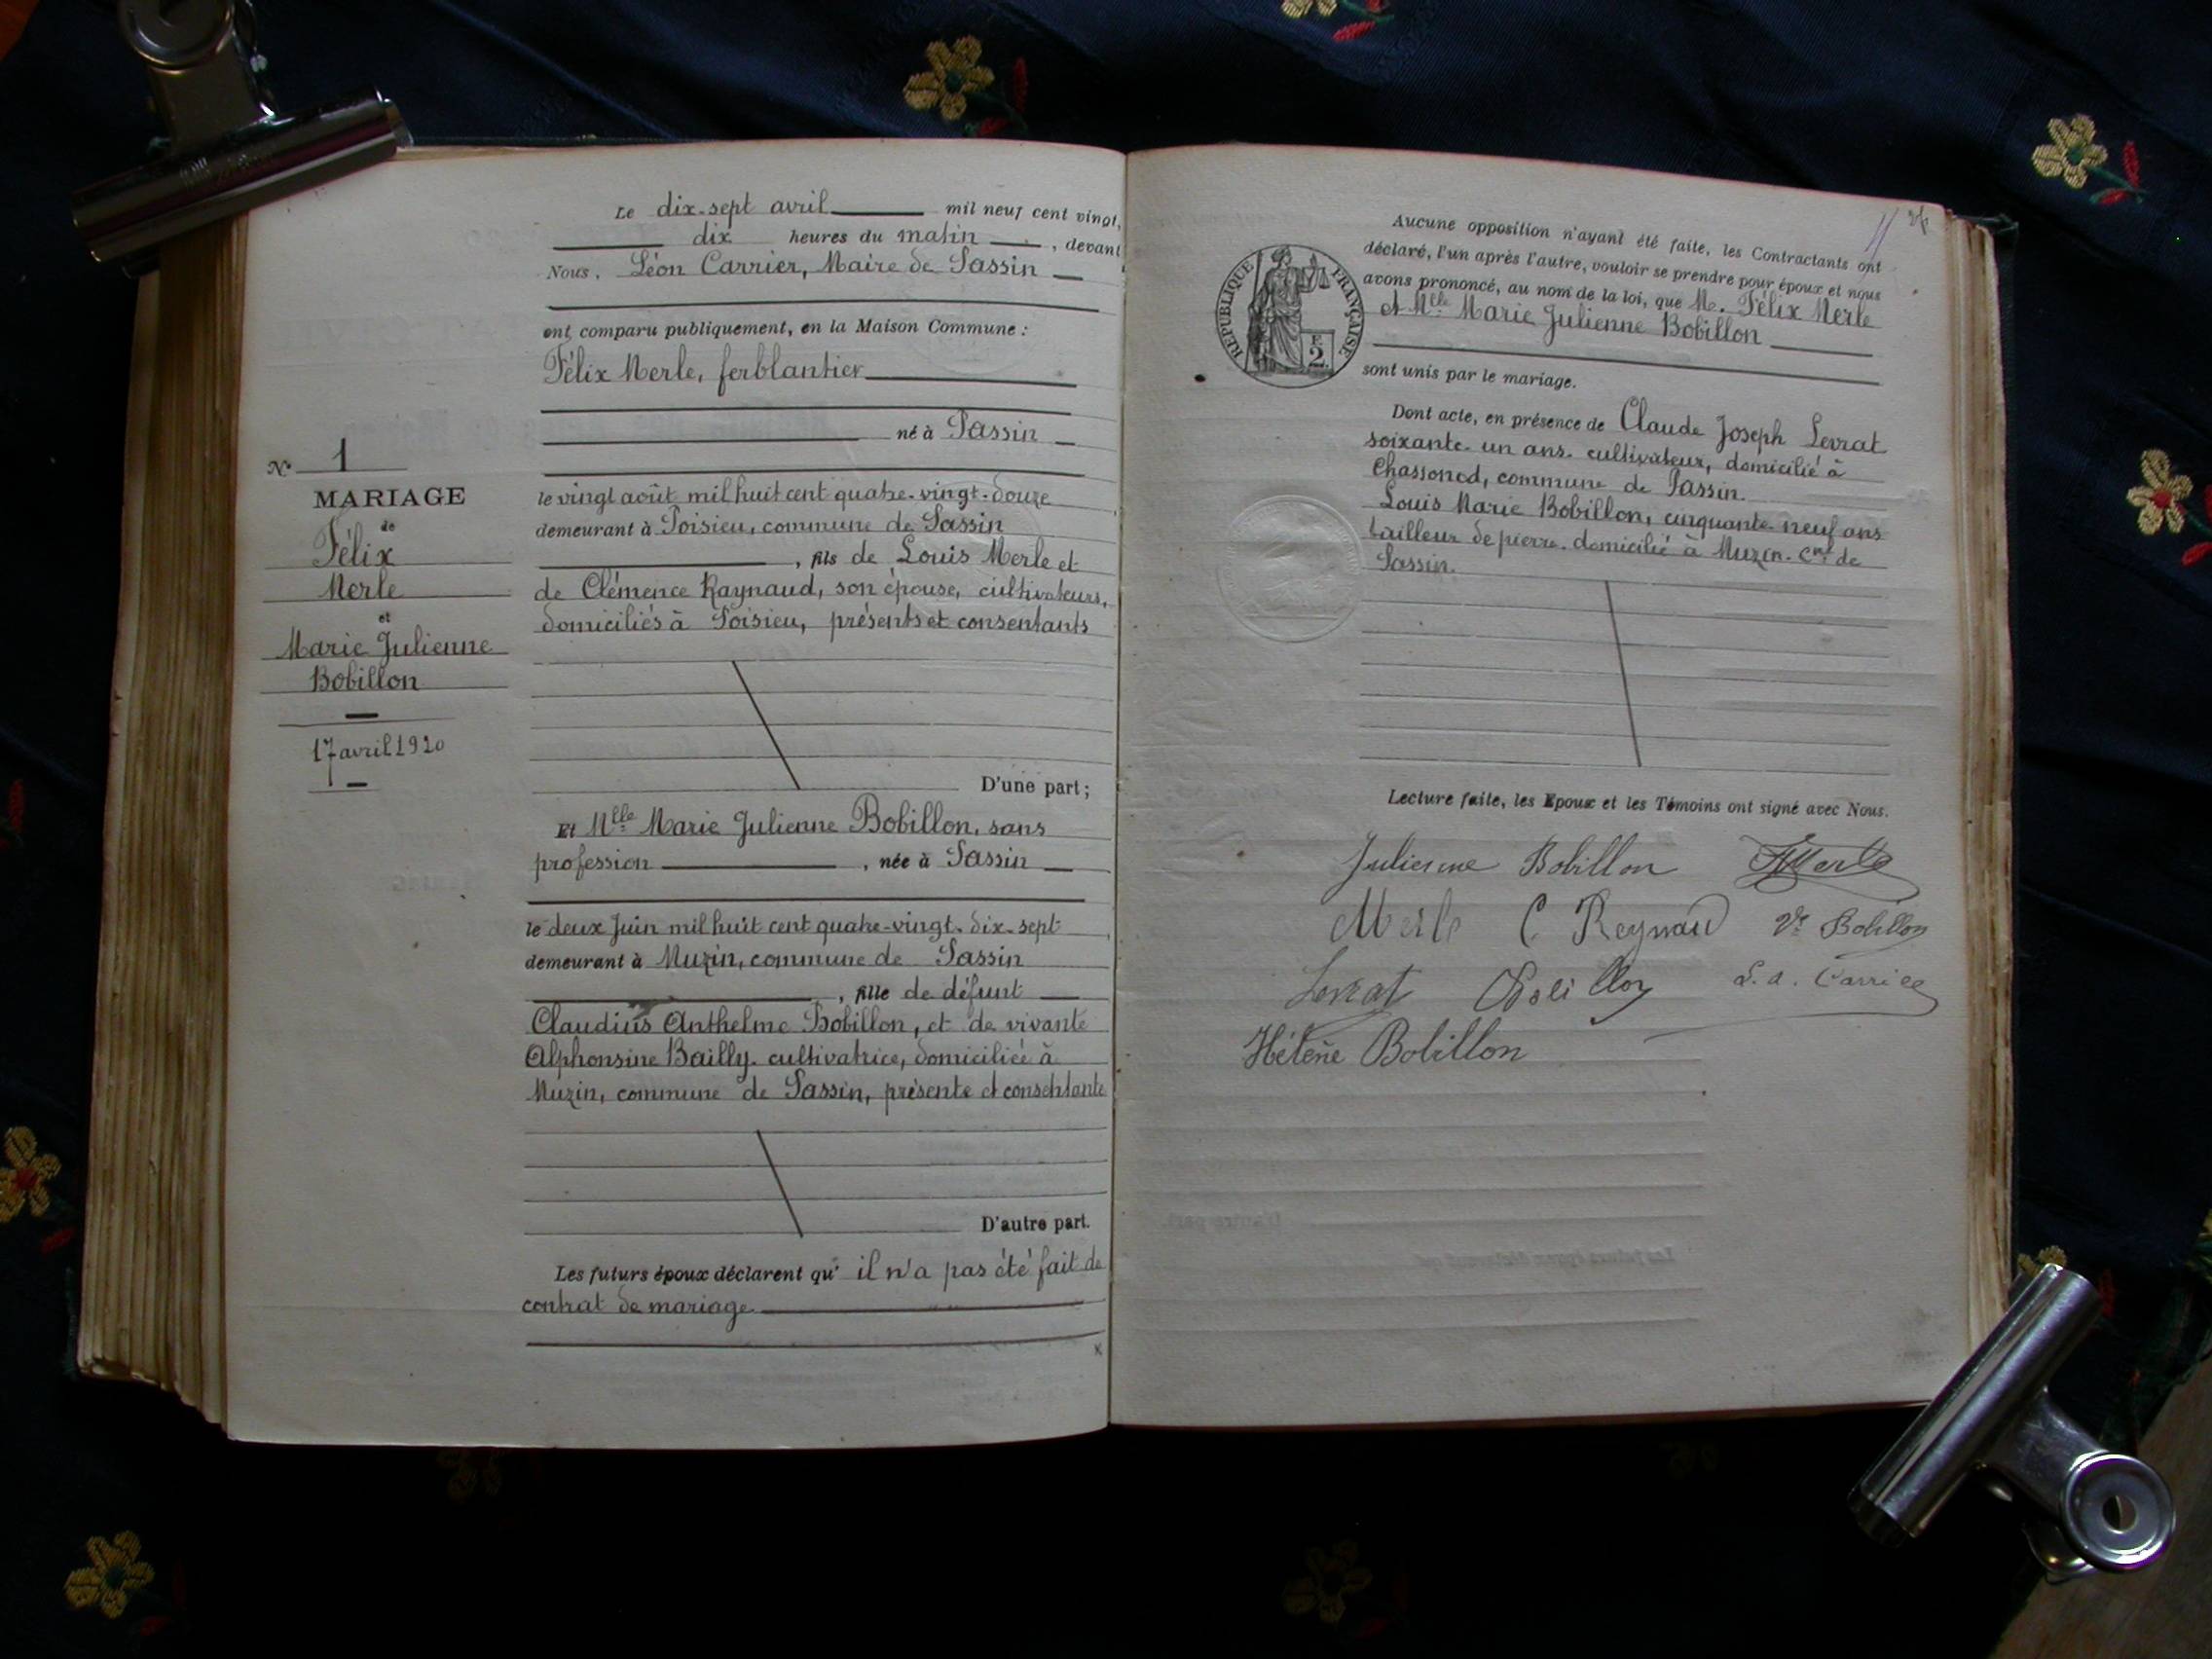 Le dix-sept avril mil neuf cent vingt,
dix heures du matin, devant
Nous, Léon Carrier, Maire de Passin
ont comparu publiquement, en la Maison Commune :
Félix Merle, ferblantier
né à Passin
N° 1
MARIAGE
de
Félix
Merle
et
Marie Julienne
Bobillon
17 avril 1920
le vingt août mil huit cent quatre-vingt-douze
demeurant à Poisieu, commune de Passin
, fils de Louis Merle et
de Clémence Raynaud, son épouse, cultivateurs,
domiciliés à Poisieu, présents et consentants
D'une part ;
Et Mlle Marie Julienne Bobillon, sans
profession, née à Passin
le deux Juin mil huit cent quatre-vingt-dix-sept
demeurant à Muzin, commune de Passin
, fille de défunt
Claudius Anthelme Bobillon, et de vivante
Alphonsine Bailly, cultivatrice, domiciliée à
Muzin, commune de Passin, présente et consentante
D'autre part.
Les futurs époux déclarent qu'il n'a pas été fait de
contrat de mariage
Aucune opposition n'ayant été faite, les Contractants ont
déclaré, l'un après l'autre, vouloir se prendre pour époux et nous
avons prononcé, au nom de la loi, que M. Félix Merle
et Mlle Marie Julienne Bobillon
RÉPUBLIQUE FRANÇAISE
2
sont unis par le mariage.
Dont acte, en présence de Claude Joseph Levrat
soixante-un ans, cultivateur, domicilié à
Chassonod, commune de Passin.
Louis Marie Bobillon, cinquante-neuf ans
tailleur de pierre, domicilié à Muzin, cne de
Passin.
Lecture faite, les Epoux et les Témoins ont signé avec Nous.
Julienne Bobillon Merle
Merle C Reynaud Ve Bobillon
Levrat Bobillon L. A. Carrier
Hélène Bobillon